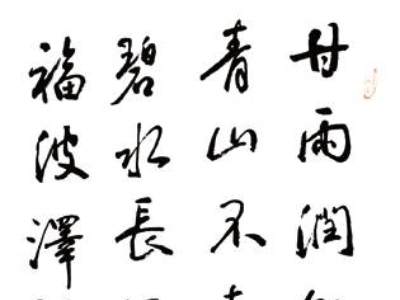 甘雨潤
青山不
碧水長
福波澤